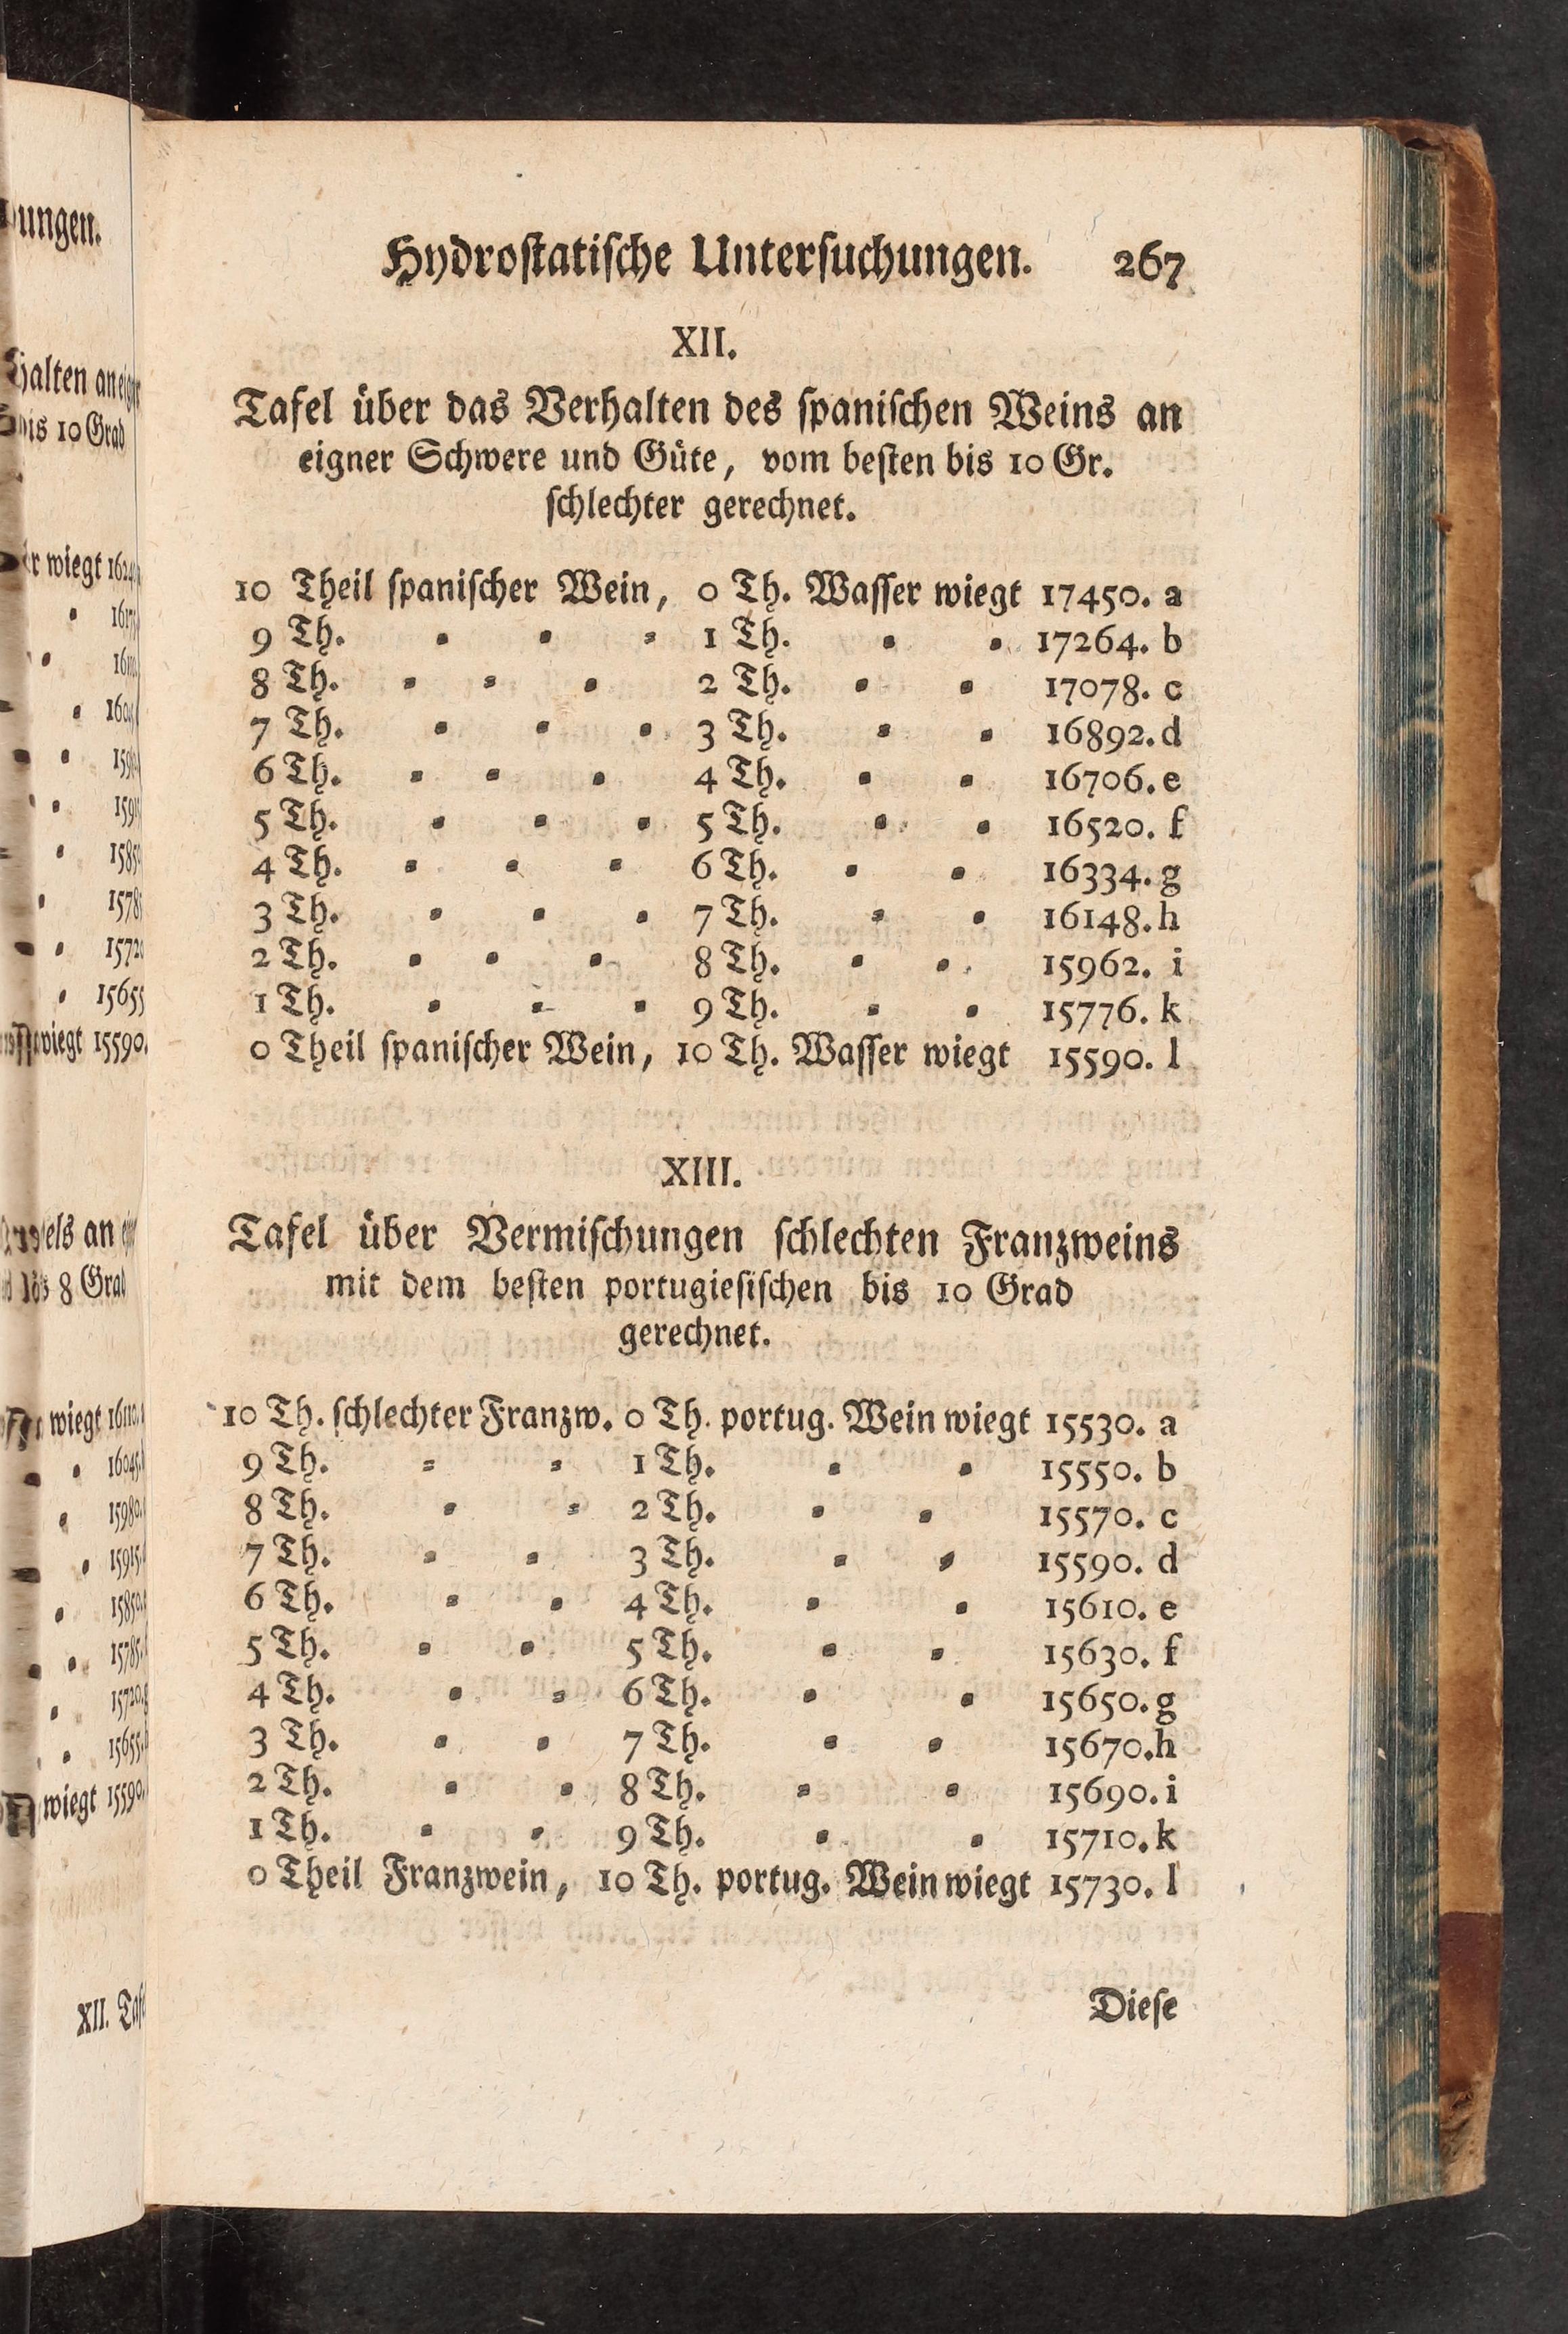 Hydrostatische Untersuchungen. 267
XII.
Tafel über das Verhalten des spanischen Weins an
eigner Schwere und Güte, vom besten bis 10 Gr.
schlechter gerechnet.
10 Theil spanischer Wein, 0 Th. Wasser wiegt 17450. a
9 Th. = = = 1 Th. = = 17264. b
8 Th. = = = 2 Th. = = 17078. c
7 Th. = = = 3 Th. = = 16892. d
6 Th. = = = 4 Th. = = 16706. e
5 Th. = = = 5 Th. = = 16520. f
4 Th. = = = 6 Th. = = 16334. g
3 Th. = = = 7 Th. = = 16148. h
2 Th. = = = 8 Th. = = 15962. i
1 Th. = = = 9 Th. = = 15776. k
0 Theil spanischer Wein, 10 Th. Wasser wiegt 15590. l
XIII.
Tafel über Vermischungen schlechten Franzweins
mit dem besten portugiesischen bis 10 Grad
gerechnet.
10 Th. schlechter Franzw. 0 Th. portug. Wein wiegt 15530. a
9 Th. = = 1 Th. = = 15550. b
8 Th. = = 2 Th. = = 15570. c
7 Th. = = 3 Th. = = 15590. d
6 Th. = = 4 Th. = = 15610. e
5 Th. = = 5 Th. = = 15630. f
4 Th. = = 6 Th. = = 15650. g
3 Th. = = 7 Th. = = 15670. h
2 Th. = = 8 Th. = = 15690. i
1 Th. = = 9 Th. = = 15710. k
0 Theil Franzwein, 10 Th. portug. Wein wiegt 15730. l
Diese